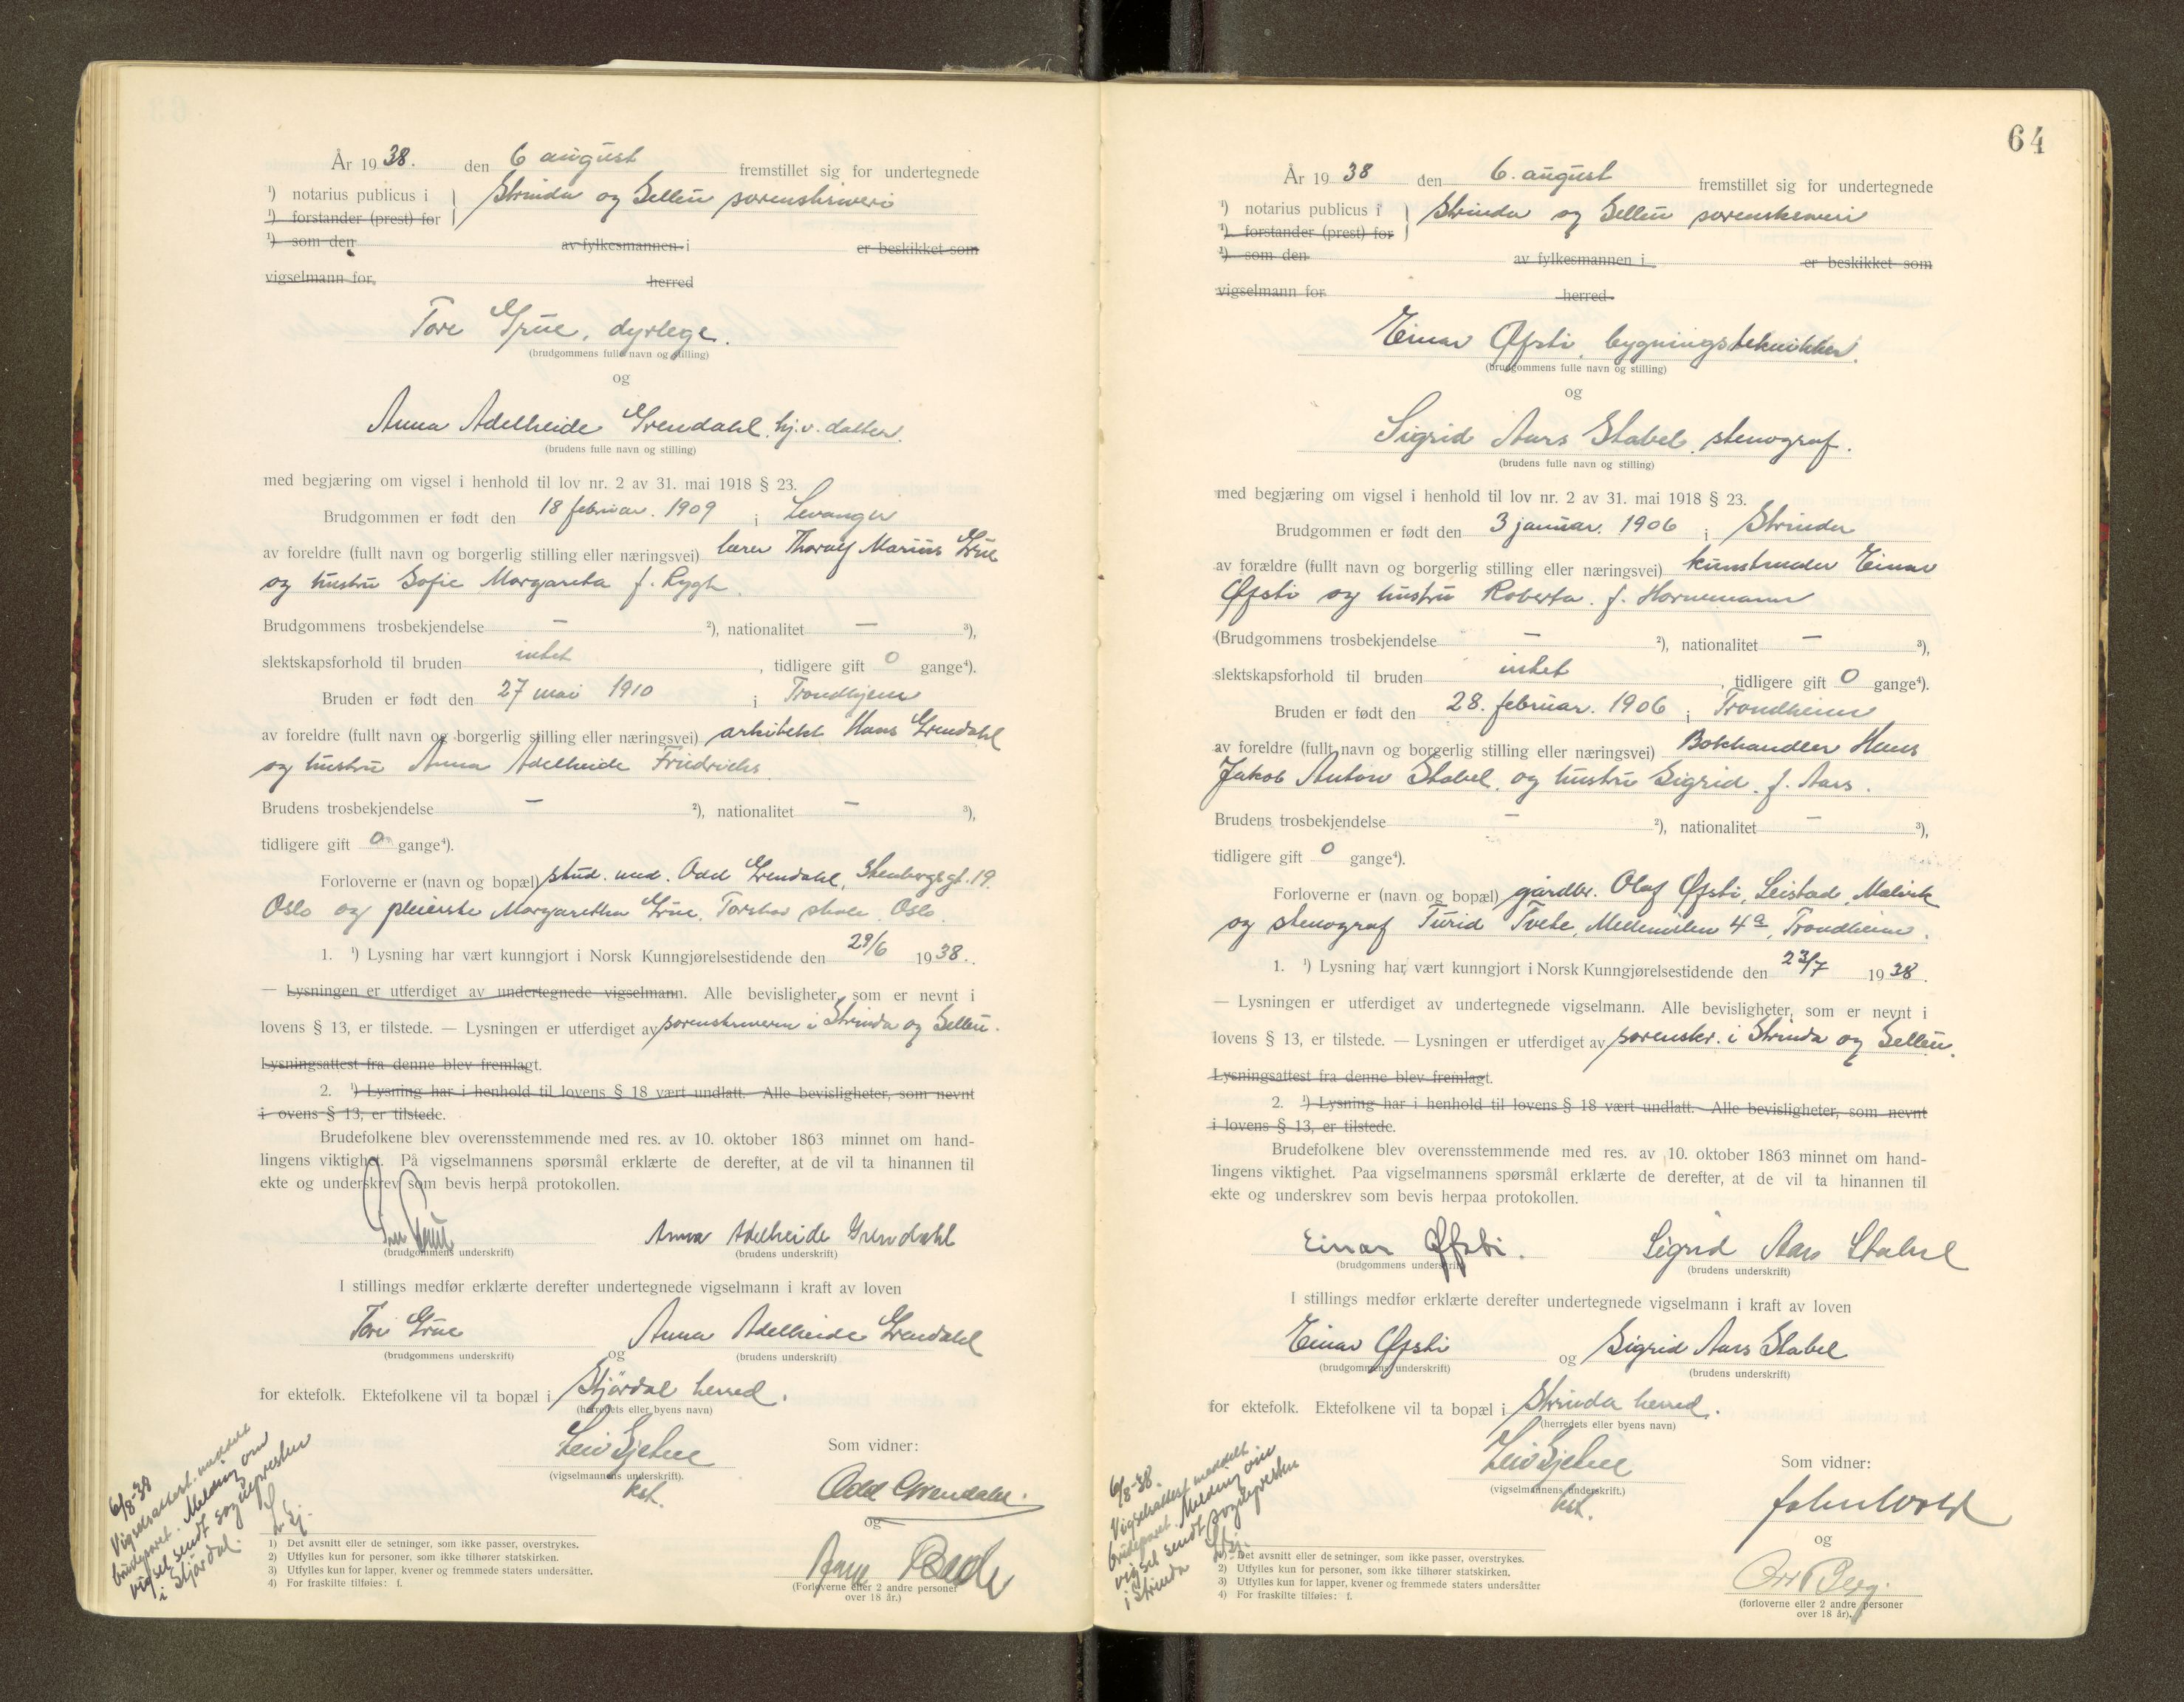 År 1938. den 6 august fremstillet sig for undertegnede
¹) notarius publicus i Strinda og Selbu sorenskriveri
¹) forstander (prest) for
¹) som den av fylkesmannen i er beskikket som
vigselmann for, herred
Tore Grue, dyrlege.
(brudgommens fulle navn og stilling)
og
Anna Adelheide Grendahl, hj.v. datter.
(brudens fulle navn og stilling)
med begjæring om vigsel i henhold til lov nr. 2 av 31. mai 1918 § 23.
Brudgommen er født den 18 februar. 1909 i Levanger
av foreldre (fullt navn og borgerlig stilling eller næringsvei) lærer Thoralf Marius Grue
og hustru Sofie Margareta f. Rygh.
Brudgommens trosbekjendelse — ²), nationalitet — ³),
slektskapsforhold til bruden intet, tidligere gift 0 gange⁴).
Bruden er født den 27 mai 1910 i Trondhjem
av foreldre (fullt navn og borgerlig stilling eller næringsvei) arkitekt Hans Grendahl
og hustru Anna Adelheide Friedrichs.
Brudens trosbekjendelse — ²), nationalitet — ³),
tidligere gift 0 gange⁴).
Forloverne er (navn og bopæl) stud. med. Odd Grendahl, Stenbergsgt. 19.
Oslo og pleierske Margaretha Grue, Torshov skole, Oslo.
1. ¹) Lysning har vært kunngjort i Norsk Kunngjørelsestidende den 29/6 1938.
— Lysningen er utferdiget av undertegnede vigselmann. Alle bevisligheter, som er nevnt i
lovens § 13, er tilstede. — Lysningen er utferdiget av sorenskriveren i Strinda og Selbu.
Lysningsattest fra denne blev fremlagt.
2. ¹) Lysning har i henhold til lovens § 18 vært undlatt. Alle bevisligheter, som nevnt
i ovens § 13, er tilstede.
Brudefolkene blev overensstemmende med res. av 10. oktober 1863 minnet om hand-
lingens viktighet. På vigselmannens spørsmål erklærte de derefter, at de vil ta hinannen til
ekte og underskrev som bevis herpå protokollen.
Tore Grue Anna Adelheide Grendahl
(brudgommens underskrift) (brudens underskrift)
I stillings medfør erklærte derefter undertegnede vigselmann i kraft av loven
Tore Grue og Anna Adelheide Grendahl
(brudgommens underskrift) (brudens underskrift)
for ektefolk. Ektefolkene vil ta bopæl i Stjørdal herred.
(herredets eller byens navn)
Leiv Gjelue
(vigselmannens underskrift).
kst.
Som vidner:
Odd Grendahl.
og
(Forloverne eller 2 andre personer
over 18 år.)
6/8-38
Vigselsattest meddelt
brudeparet. Melding om
vigsel sendt sognepresten
i Stjørdal.
L Gj.
1) Det avsnitt eller de setninger, som ikke passer, overstrykes.
2) Utfylles kun for personer, som ikke tilhører statskirken.
3) Utfylles kun for lapper, kvener og fremmede staters undersåtter.
4) For fraskilte tilføies: f.
64
År 1938 den 6. august fremstillet sig for undertegnede
¹) notarius publicus i Strinda og Selbu sorenskriveri
¹) forstander (prest) for
¹) som den av fylkesmannen i er beskikket som
vigselmann for herred
Einar Øfsti, bygningstekniker.
(brudgommens fulle navn og stilling)
og
Sigrid Aars Stabel, stenograf.
(brudens fulle navn og stilling)
med begjæring om vigsel i henhold til lov nr. 2 av 31. mai 1918 § 23.
Brudgommen er født den 3 januar. 1906 i Strinda
av forældre (fullt navn og borgerlig stilling eller næringsvei) kunstmaler Einar
Øfsti og hustru Roberta. f. Hornemann
(Brudgommens trosbekjendelse — ²), nationalitet — ³),
slektskapsforhold til bruden intet, tidligere gift 0 gange⁴).
Bruden er født den 28. februar. 1906 i Trondheim
av foreldre (fullt navn og borgerlig stilling eller næringsvei) Bokhandler Hans
Jakob Anton Stabel, og hustru Sigrid. f. Aars.
Brudens trosbekjendelse — ²), nationalitet — ³),
tidligere gift 0 gange⁴).
Forloverne er (navn og bopæl) gårdbr. Olaf Øfsti, Leistad, Malvik
og stenograf Turid Tvete, Mellemilen 4a, Trondheim.
1. ¹) Lysning har vært kunngjort i Norsk Kunngjørelsestidende den 23/7 1938.
— Lysningen er utferdiget av undertegnede vigselmann. Alle bevisligheter, som er nevnt i
lovens § 13, er tilstede. — Lysningen er utferdiget av sorenskr. i Strinda og Selbu.
Lysningsattest fra denne blev fremlagt.
2. ¹) Lysning har i henhold til lovens § 18 vært undlatt. Alle bevisligheter, som nevnt
i lovens § 13, er tilstede.
Brudefolkene blev overensstemmende med res. av 10. oktober 1863 minnet om hand-
lingens viktighet. Paa vigselmannens spørsmål erklærte de derefter, at de vil ta hinannen til
ekte og underskrev som bevis herpaa protokollen.
Einar Øfsti. Sigrid Aars Stabel
(brudgommens underskrift) (brudens underskrift)
I stillings medfør erklærte derefter undertegnede vigselmann i kraft av loven
Einar Øfsti og Sigrid Aars Stabel
(brudgommens underskrift) (brudens underskrift)
for ektefolk. Ektefolkene vil ta bopæl i Strinda herred.
(herredets eller byens navn)
Leiv Gjelue
(vigselmannens underskrift.)
kst.
Som vidner:
John Wold
og
Berg.
(forloverne eller 2 andre personer
over 18 år).
6/8-38.
Vigselsattest meddelt
brudeparet. Melding om
vigsel sendt sognepresten
i Strinda
L Gj.
1) Det avsnitt eller de setninger, som ikke passer, overstrykes.
2) Utfylles kun for personer, som ikke tilhører statskirken.
3) Utfylles kun for lapper, kvener og fremmede staters undersåtter
4) For fraskilte tilføies: f.